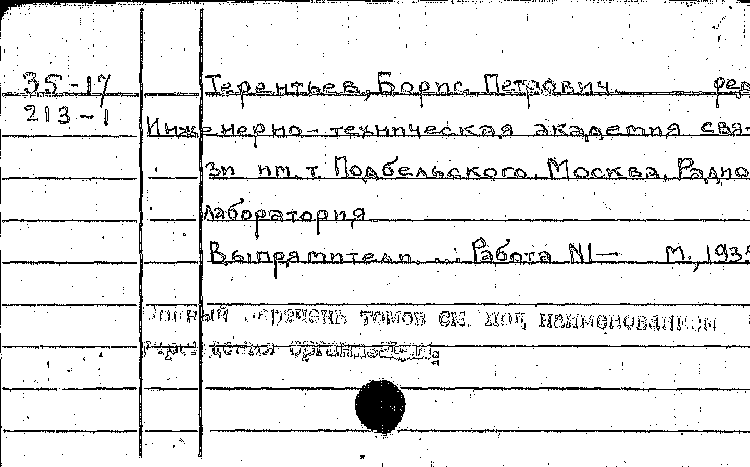 35-17
213-1
Терентьев, Борис Петрович ред
Инженерно-техническая академия свя-
зи им. т. Подбельского. Москва. Радио
лаборатория
Выпрямители ...: Работа N1— М., 193
Полный перечень томов см. под наименованием
учреждения организации.